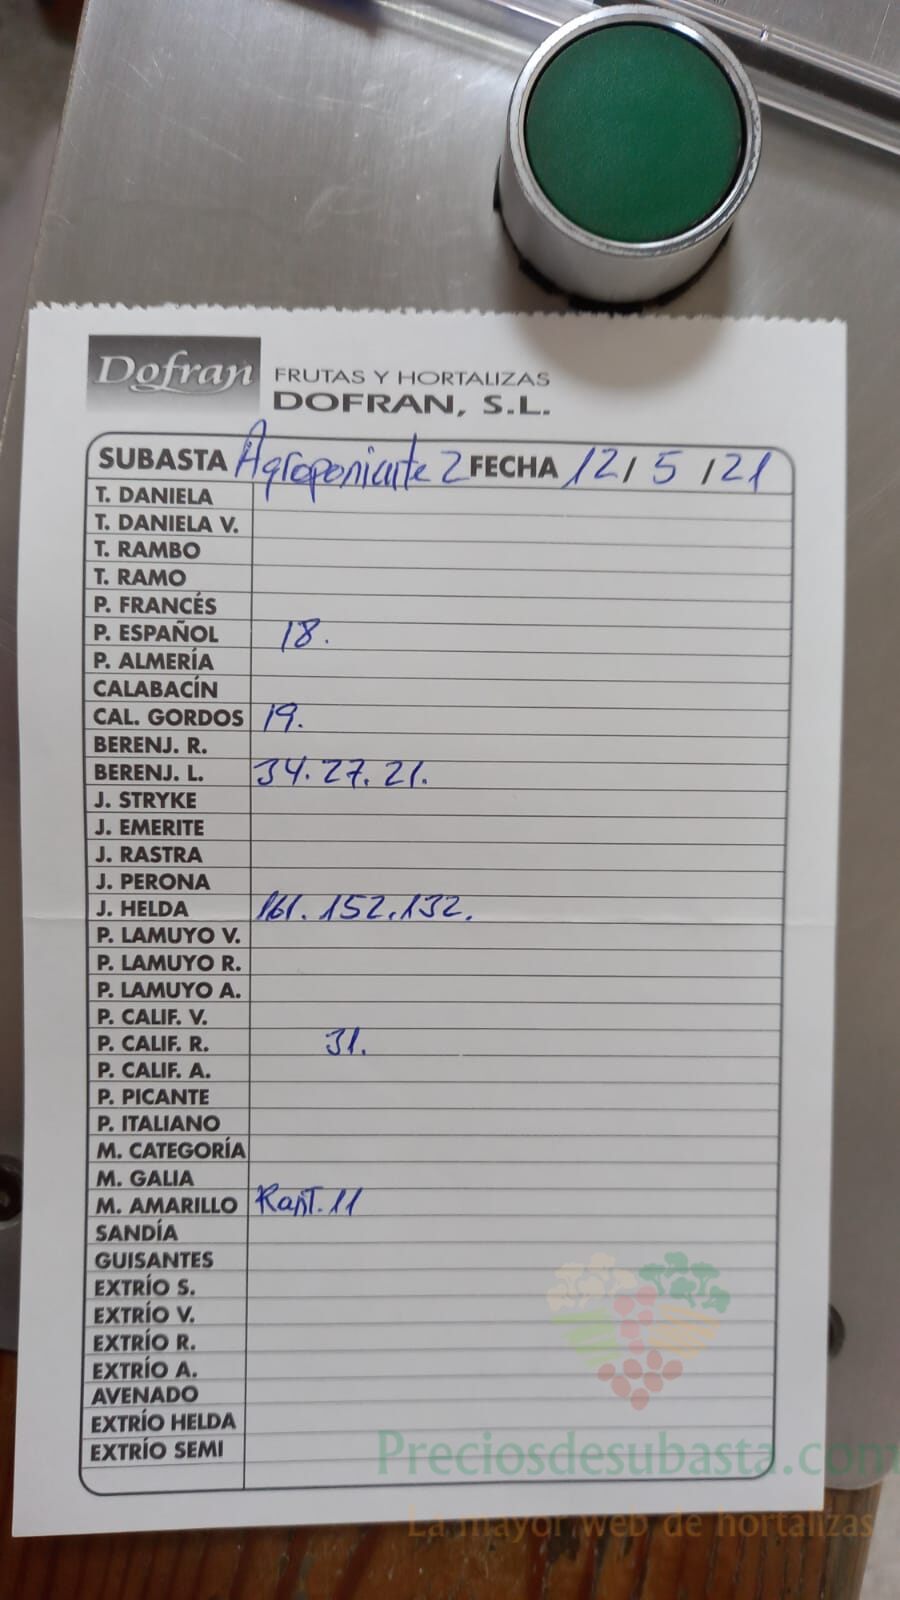 Dofran FRUTAS Y HORTALIZAS
DOFRAN, S.L.
SUBASTA Agroponiente 2 FECHA 12/5/21
T. DANIELA
T. DANIELA V.
T. RAMBO
T. RAMO
P. FRANCÉS
P. ESPAÑOL 18.
P. ALMERÍA
CALABACÍN
CAL. GORDOS 19.
BERENJ. R.
BERENJ. L. 34. 27. 21.
J. STRYKE
J. EMERITE
J. RASTRA
J. PERONA
J. HELDA 161. 152. 132.
P. LAMUYO V.
P. LAMUYO R.
P. LAMUYO A.
P. CALIF. V.
P. CALIF. R. 31.
P. CALIF. A.
P. PICANTE
P. ITALIANO
M. CATEGORÍA
M. GALIA
M. AMARILLO 11
SANDÍA
GUISANTES
EXTRÍO S.
EXTRÍO V.
EXTRÍO R.
EXTRÍO A.
AVENADO
EXTRÍO HELDA
EXTRÍO SEMI
Preciosdesubasta.com
La mayor web de hortalizas